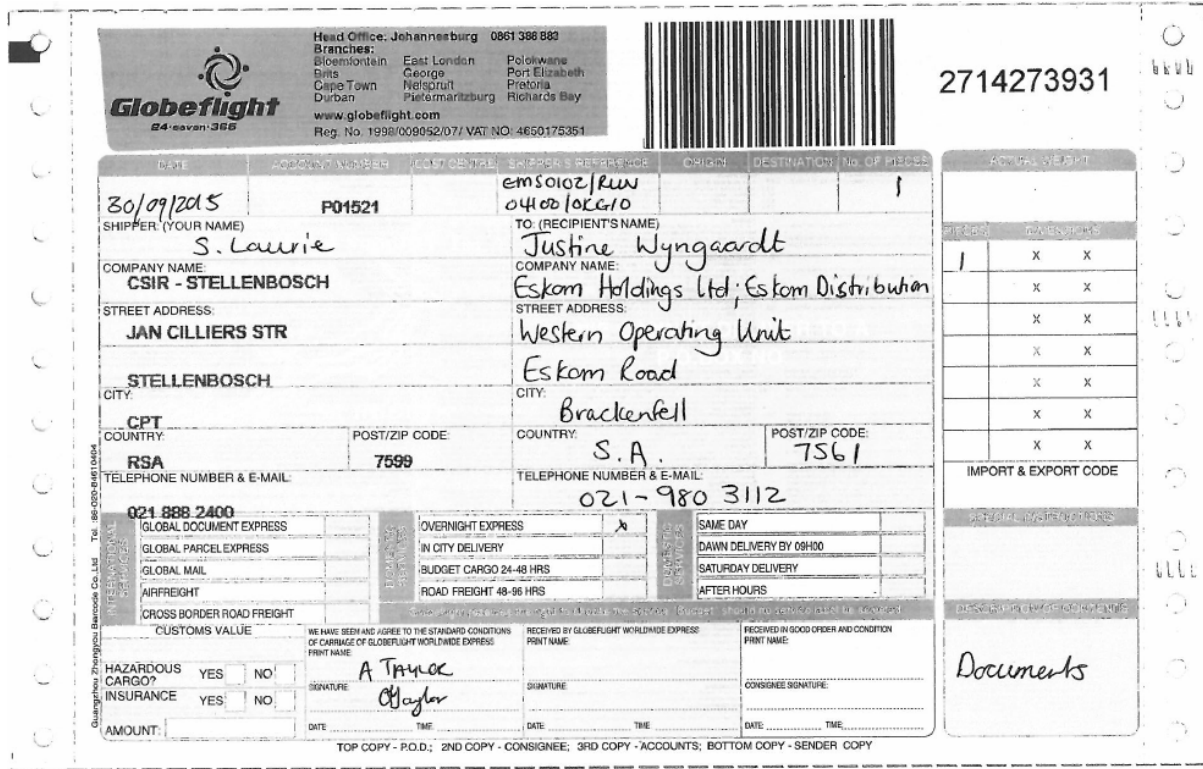 Head Office: Johannesburg 0861 388 883
Branches:
Bloemfontein East London Polokwane
Brits George Port Elizabeth
Cape Town Nelspruit Pretoria
Durban Pietermaritzburg Richards Bay
www.globeflight.com
Reg. No. 1998/009052/07/ VAT NO: 4650175351
Globeflight
24·seven·366
2714273931
DATE ACCOUNT NUMBER COST CENTRE SHIPPER'S REFERENCE ORIGIN DESTINATION No. OF PIECES
30/09/2015 P01521 EMS0102/RUN 1
0400/OKG/0
SHIPPER: (YOUR NAME)
S. Laurie
COMPANY NAME:
CSIR - STELLENBOSCH
STREET ADDRESS:
JAN CILLIERS STR
STELLENBOSCH
CITY:
CPT
COUNTRY: POST/ZIP CODE:
RSA 7599
TELEPHONE NUMBER & E-MAIL:
021 888 2400
TO: (RECIPIENT'S NAME)
Justine Wyngaardt
COMPANY NAME:
Eskom Holdings Ltd; Eskom Distribution
STREET ADDRESS:
Western Operating Unit
Eskom Road
CITY:
Brackenfell
COUNTRY: POST/ZIP CODE:
S.A. 7561
TELEPHONE NUMBER & E-MAIL:
021-980 3112
ACTUAL WEIGHT
PIECES DIMENSIONS
1 X X
X X
X X
X X
X X
X X
X X
IMPORT & EXPORT CODE
SPECIAL INSTRUCTIONS
DESCRIPTION OF CONTENTS
Documents
GLOBAL DOCUMENT EXPRESS
GLOBAL PARCEL EXPRESS
GLOBAL MAIL
AIRFREIGHT
CROSS BORDER ROAD FREIGHT
OVERNIGHT EXPRESS x
IN CITY DELIVERY
BUDGET CARGO 24-48 HRS
ROAD FREIGHT 48-96 HRS
SAME DAY
DAWN DELIVERY BY 09H00
SATURDAY DELIVERY
AFTER HOURS
CUSTOMS VALUE
HAZARDOUS
CARGO? YES NO
INSURANCE YES NO
AMOUNT:
WE HAVE SEEM AND AGREE TO THE STANDARD CONDITIONS
OF CARRIAGE OF GLOBEFLIGHT WORLDWIDE EXPRESS
PRINT NAME:
A TAYLOR
SIGNATURE
DATE TIME
RECEIVED BY GLOBEFLIGHT WORLDWIDE EXPRESS
PRINT NAME:
SIGNATURE
DATE: TIME
RECEIVED IN GOOD ORDER AND CONDITION
PRINT NAME:
CONSIGNEE SIGNATURE:
DATE: TIME:
TOP COPY - P.O.D.; 2ND COPY - CONSIGNEE; 3RD COPY - ACCOUNTS; BOTTOM COPY - SENDER COPY
Guangzhou Zhongyou Barcode Co., Ltd Tel: :86-020-84610404